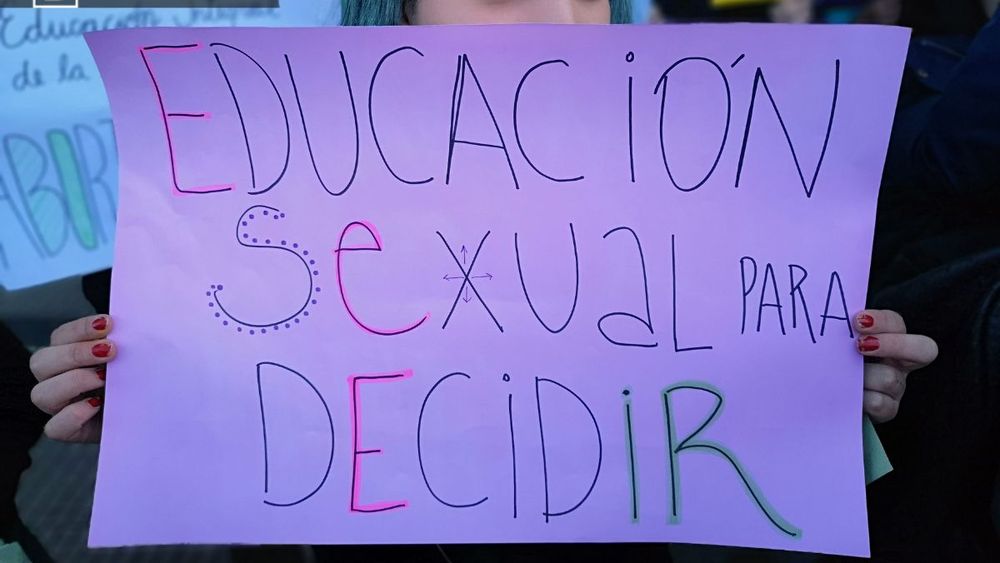 Educación
de la
EDUCACIÓN
SEXUAL PARA
DECIDIR